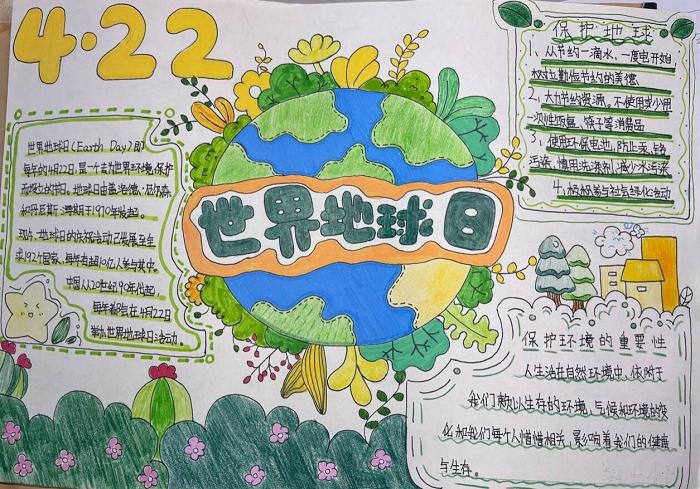 4·22
世界地球日(Earth Day)即
每年的4月22日,是一个专为世界环境保护
而设立的节日。地球日由盖洛德·尼尔森
和丹尼斯·海斯于1970年发起。
现今,地球日的庆祝活动已发展至全
球192个国家,每年有超10亿人参与其中。
中国从20世纪90年代起,
每年都会在4月22日
举办世界地球日活动。
世界地球日
保护地球
1、从节约一滴水、一度电开始,
树立勤俭节约的美德
2、大力节约资源。不使用或少用
一次性饭盒、筷子等消费品
3、使用环保电池,防止汞、镉
污染,慎用洗涤剂,减少水污染
4、积极参与社会绿化活动
保护环境的重要性
人生活在自然环境中,
我们赖以生存的环境,气候和环境的变
化和我们每个人息息相关,影响着我们的健康
与生存。